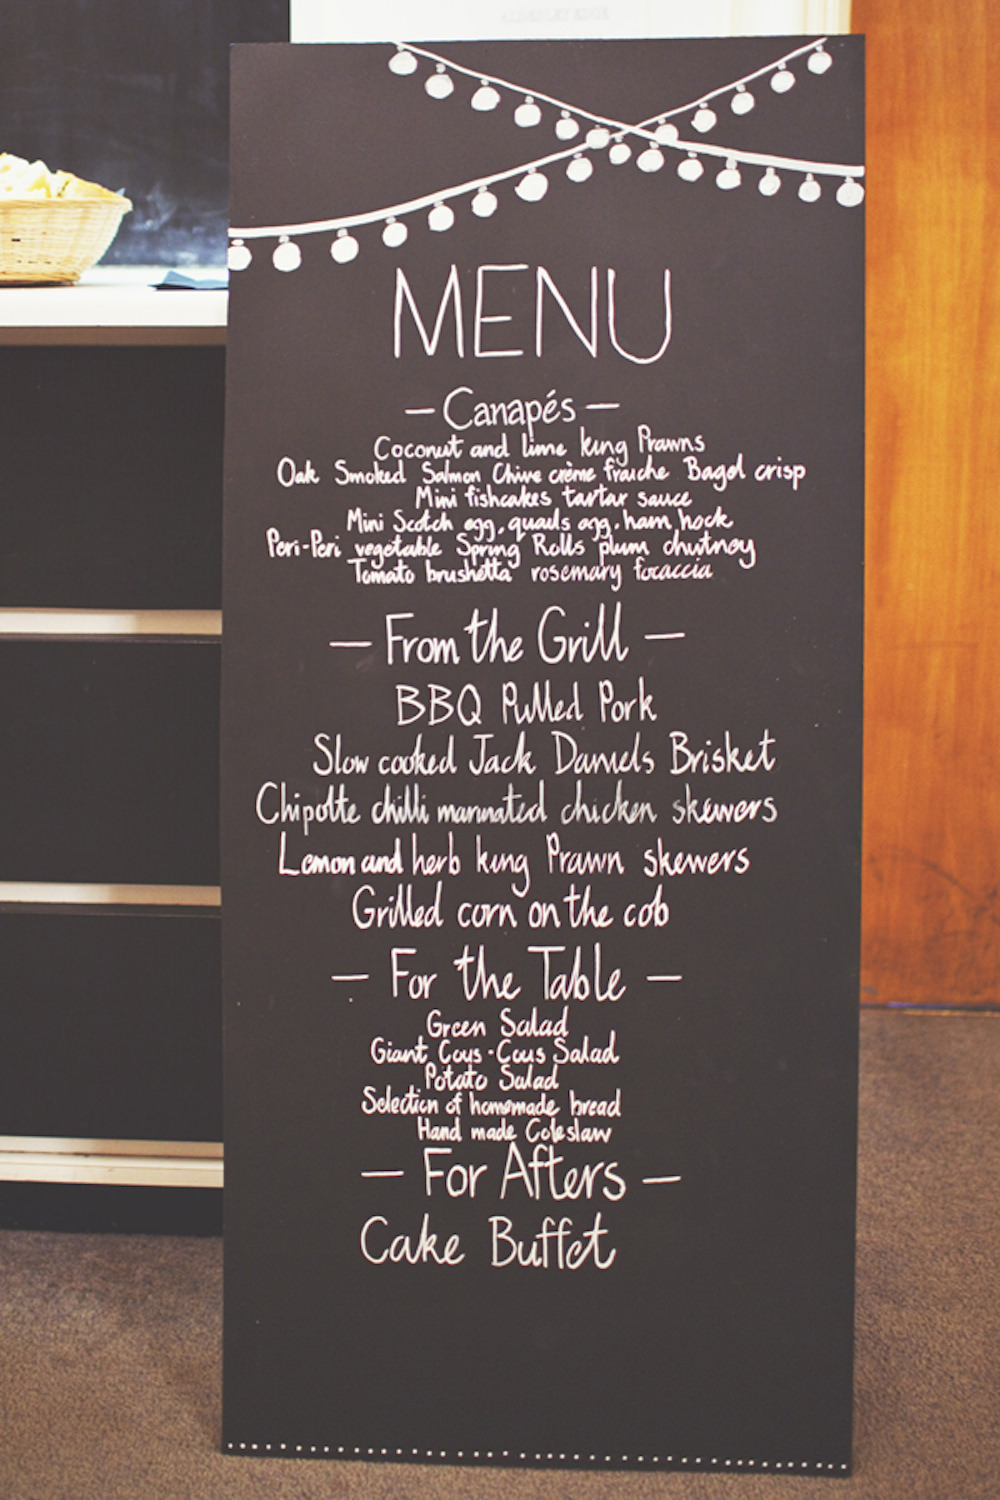 MENU
– Canapés –
Coconut and lime king Prawns
Oak Smoked Salmon Chive crème fraiche Bagel crisp
Mini fishcakes tartar sauce
Mini Scotch egg, quails egg, ham hock
Peri-Peri vegetable Spring Rolls plum chutney
Tomato brushetta rosemary focaccia
– From the Grill –
BBQ Pulled Pork
Slow cooked Jack Daniels Brisket
Chipotte chilli marinated chicken skewers
Lemon and herb king Prawn skewers
Grilled corn on the cob
– For the Table –
Green Salad
Giant Cous-Cous Salad
Potato Salad
Selection of homemade bread
Hand made Coleslaw
– For Afters –
Cake Buffet